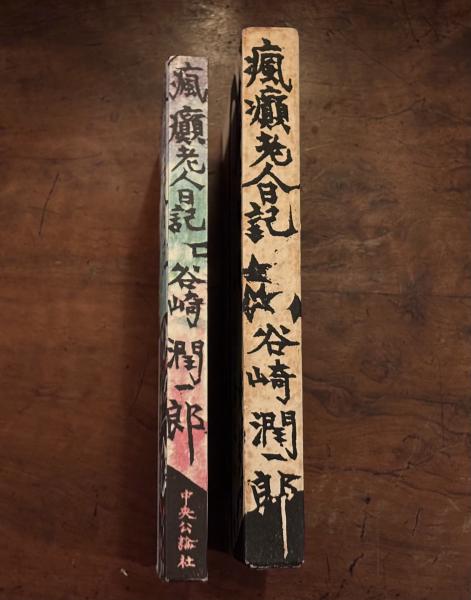 瘋癲老人日記
谷崎潤一郎
中央公論社
瘋癲老人日記
谷崎潤一郎